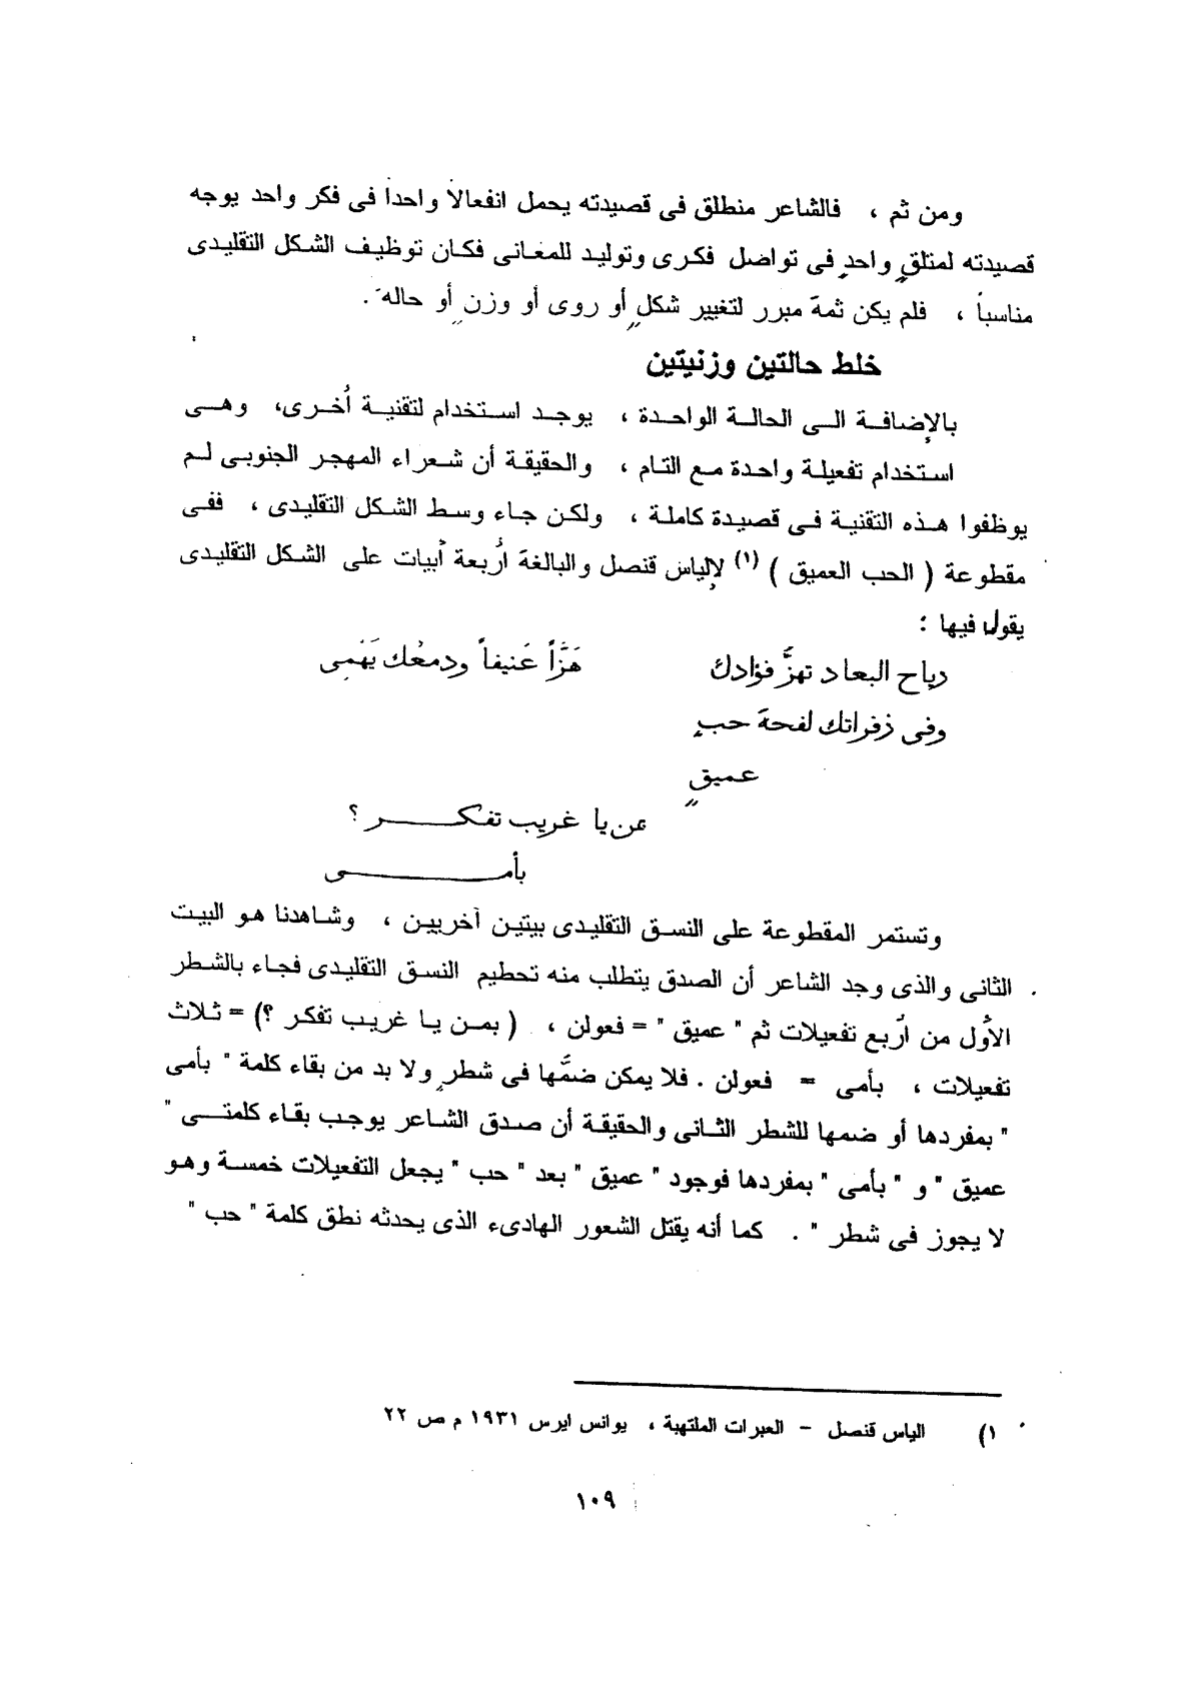 ومن ثم ، فالشاعر منطلق فى قصيدته يحمل انفعالاً واحداً فى فكر واحد يوجه
قصيدته لمتلقٍ واحدٍ فى تواصل فكرى وتوليد للمعانى فكان توظيف الشكل التقليدى
مناسباً ، فلم يكن ثمة مبرر لتغيير شكلٍ أو روى أو وزنٍ أو حاله .
خلط حالتين وزنيتين
بالإضافة الى الحالة الواحدة ، يوجد استخدام لتقنية أخرى، وهى
استخدام تفعيلة واحدة مع التام ، والحقيقة أن شعراء المهجر الجنوبى لم
يوظفوا هذه التقنية فى قصيدة كاملة ، ولكن جاء وسط الشكل التقليدى ، ففى
مقطوعة ( الحب العميق ) (١) لإلياس قنصل والبالغة أربعة أبيات على الشكل التقليدى
يقول فيها :
رياح البعاد تهزُّ فؤادك هَزَّاً عَنيفاً ودمعُك يَهْمِى
وفى زفراتك لفحة حبٍ
عميقٍ
من يا غريب تفكـــــر ؟
بأمــــــــى
وتستمر المقطوعة على النسق التقليدى ببيتين آخريين ، وشاهدنا هو البيت
الثانى والذى وجد الشاعر أن الصدق يتطلب منه تحطيم النسق التقليدى فجاء بالشطر
الأول من أربع تفعيلات ثم " عميق " = فعولن ، ( بمن يا غريب تفكر ؟) = ثلاث
تفعيلات ، بأمى = فعولن . فلا يمكن ضمُّها فى شطرٍ ولا بد من بقاء كلمة " بأمى
" بمفردها أو ضمها للشطر الثانى والحقيقة أن صدق الشاعر يوجب بقاء كلمتى "
عميق " و " بأمى " بمفردها فوجود " عميق " بعد " حب " يجعل التفعيلات خمسة وهو
لا يجوز فى شطر " . كما أنه يقتل الشعور الهادىء الذى يحدثه نطق كلمة " حب "
١) الياس قنصل – العبرات الملتهبة ، يوانس ايرس ١٩٣١ م ص ٢٢
١٠٩